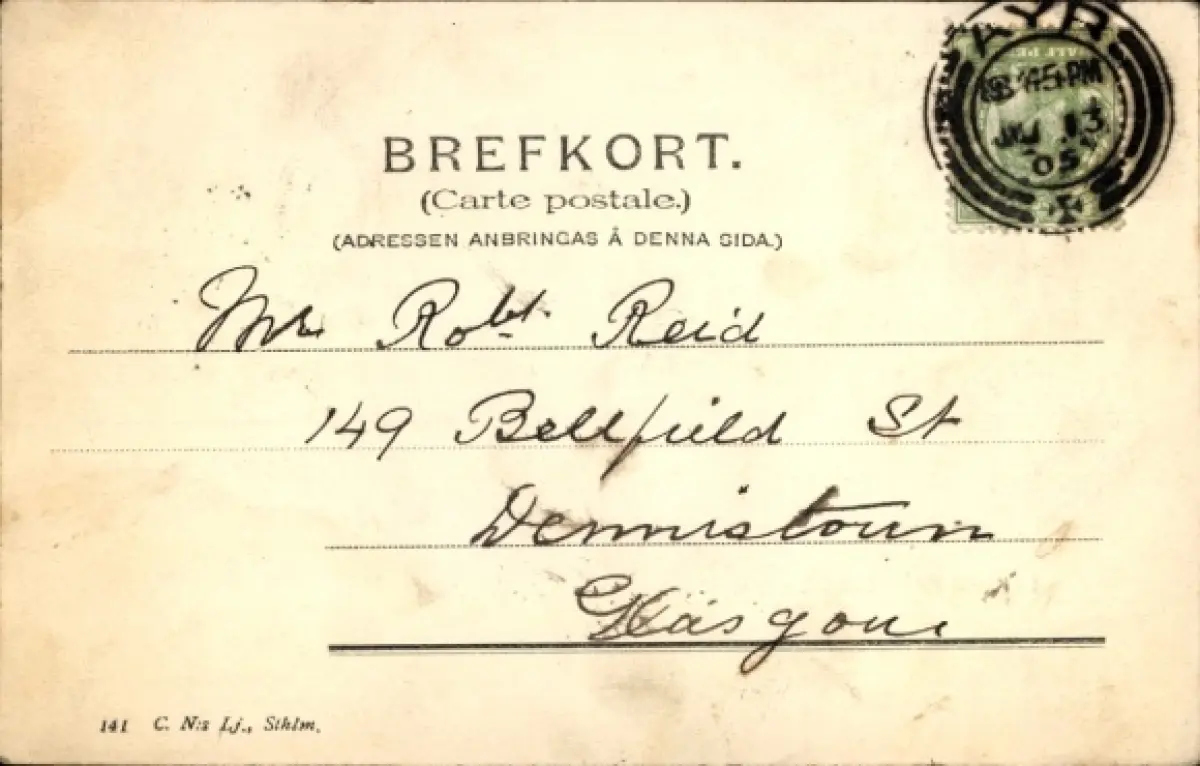 AYR
8 45 PM
13
05
BREFKORT.
(Carte postale.)
(ADRESSEN ANBRINGAS Å DENNA SIDA.)
Mr Robt. Reid
149 Bellfield St
Dennistoun
Glasgow
141 C. N:s Lj., Sthlm.